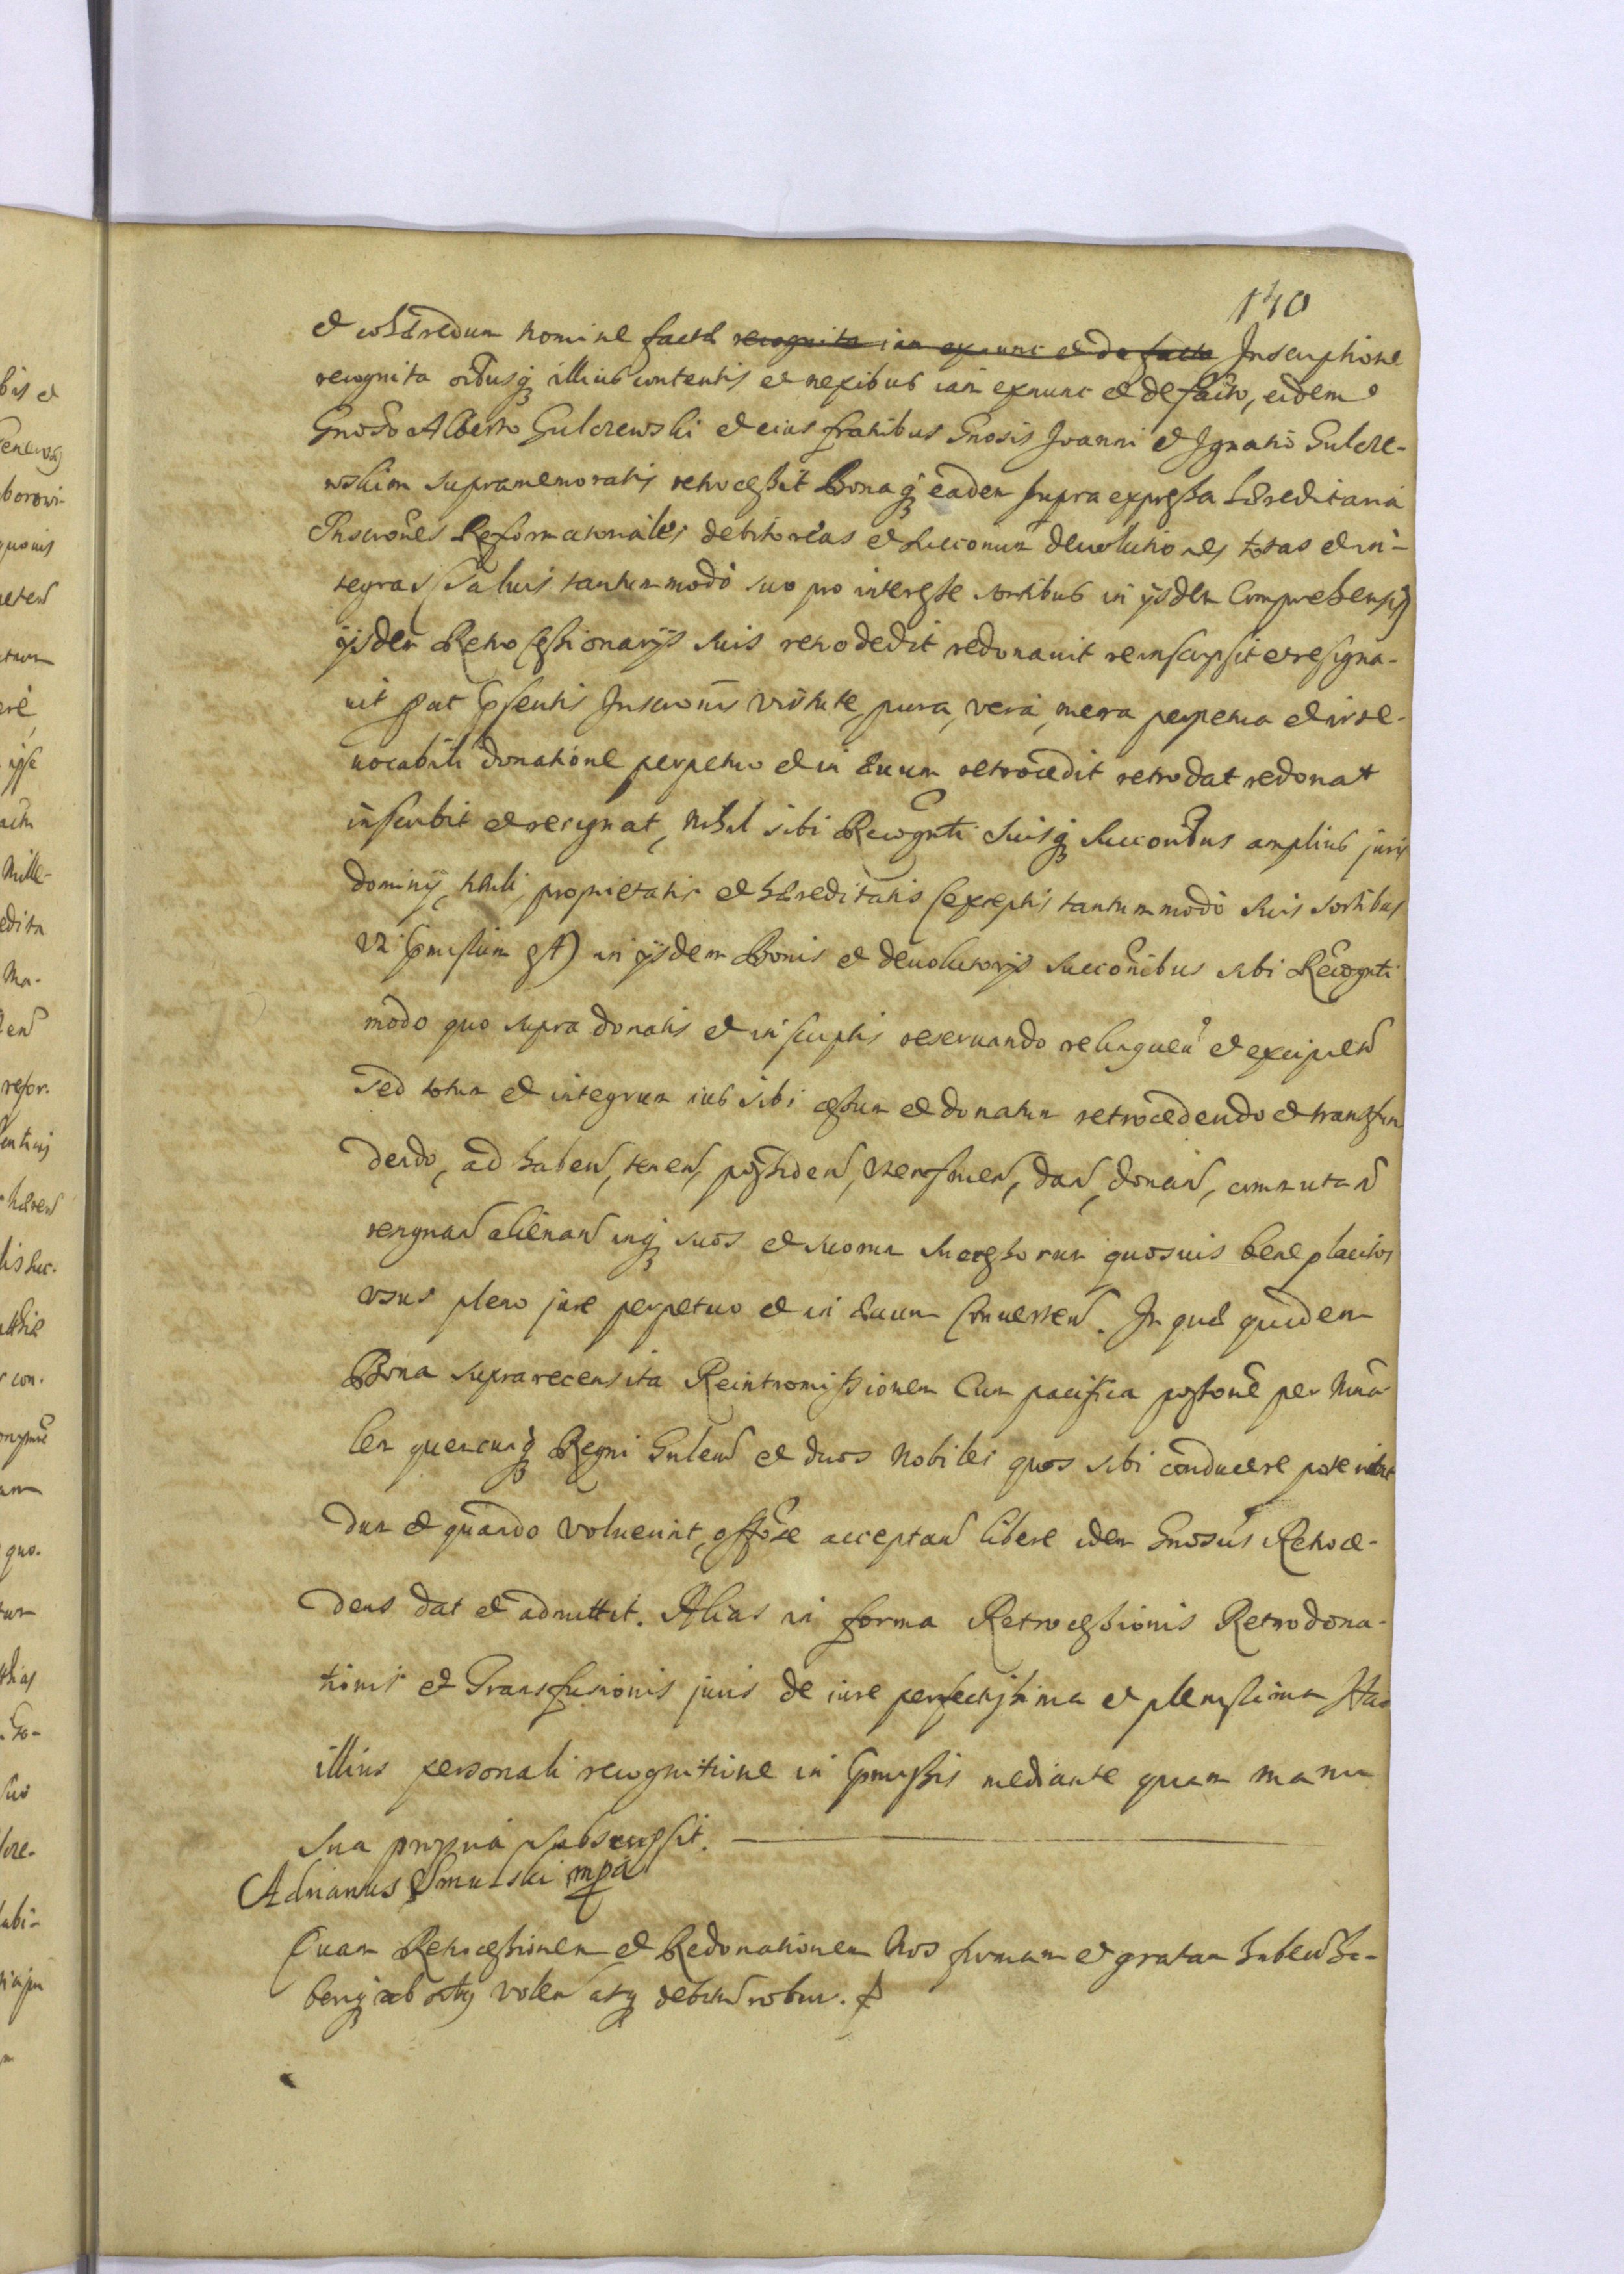 140
et cohæredum nomine factæ recognita iam exnunc et de facto Inscriptione
recognita oībusq illius contentis et nexibus iam exnunc et de facto, eidem
Gnoso Alberto Gulczewski et eius fratribus Gnosis Joanni et Ignatio Gulcze-
wskim supramemoratis retrocessit Bonaq eadem supra expressa hæreditaria
Inscrōnes Reformatoriales debitorias et succonum devolutiones totas et in-
tegras salvis tantummodo suo pro interesse sortibus in ijsdem Comprehensis
ijsdem Retrocessionarijs suis retrodedit redonavit reinscripsit et resigna-
vit put pſentis Inscronis virtute, pura, vera, mera perpetua et irre-
vocabili donatione perpetuo et in ævum retrocedit retrodat redonat
inscribit et resignat, Nihil sibi Recognti suisq succoribus amplius juris
dominij, tituli, proprietatis et hæreditatis (exceptis tantummodo suis sortibus
uti pmissum est) in ijsdem Bonis et devolutorijs succonibus sibi Recognti
modo quo supra donatis et inscriptis reservando relinquen et excipien
sed totum et integrum ius sibi cessum et donatum retrocedendo et transfun
dendo, ad haben, tenen, possiden, utenfruen, dan, donan, commutan
resignan alienan inq suos et suorum successorum quosvis beneplacitos
usus pleno jure perpetuo et in ævum Converten. In quæ quidem
Bona suprarecensita Reintromissionem Cum pacifica possone per Mina
lem quemcunq Regni Gnlem et duos Nobiles quos sibi conducere poterint
dum et quando voluerint, offose acceptan libere idem Gnosus Retroce-
dens dat et admittit. Alias in forma Retrocessionis Retrodona-
tionis et Transfusionis juris de iure perfectissima et plenissima Hac
illius personali recognitione in pmissis mediante quam manu
sua propria subscripsit.
Adrianus Smulski mpa
Quam Retrocessionem et Redonationem Nos firmam et gratam haben ha-
beriq ab oībs volen atq debitum robur.